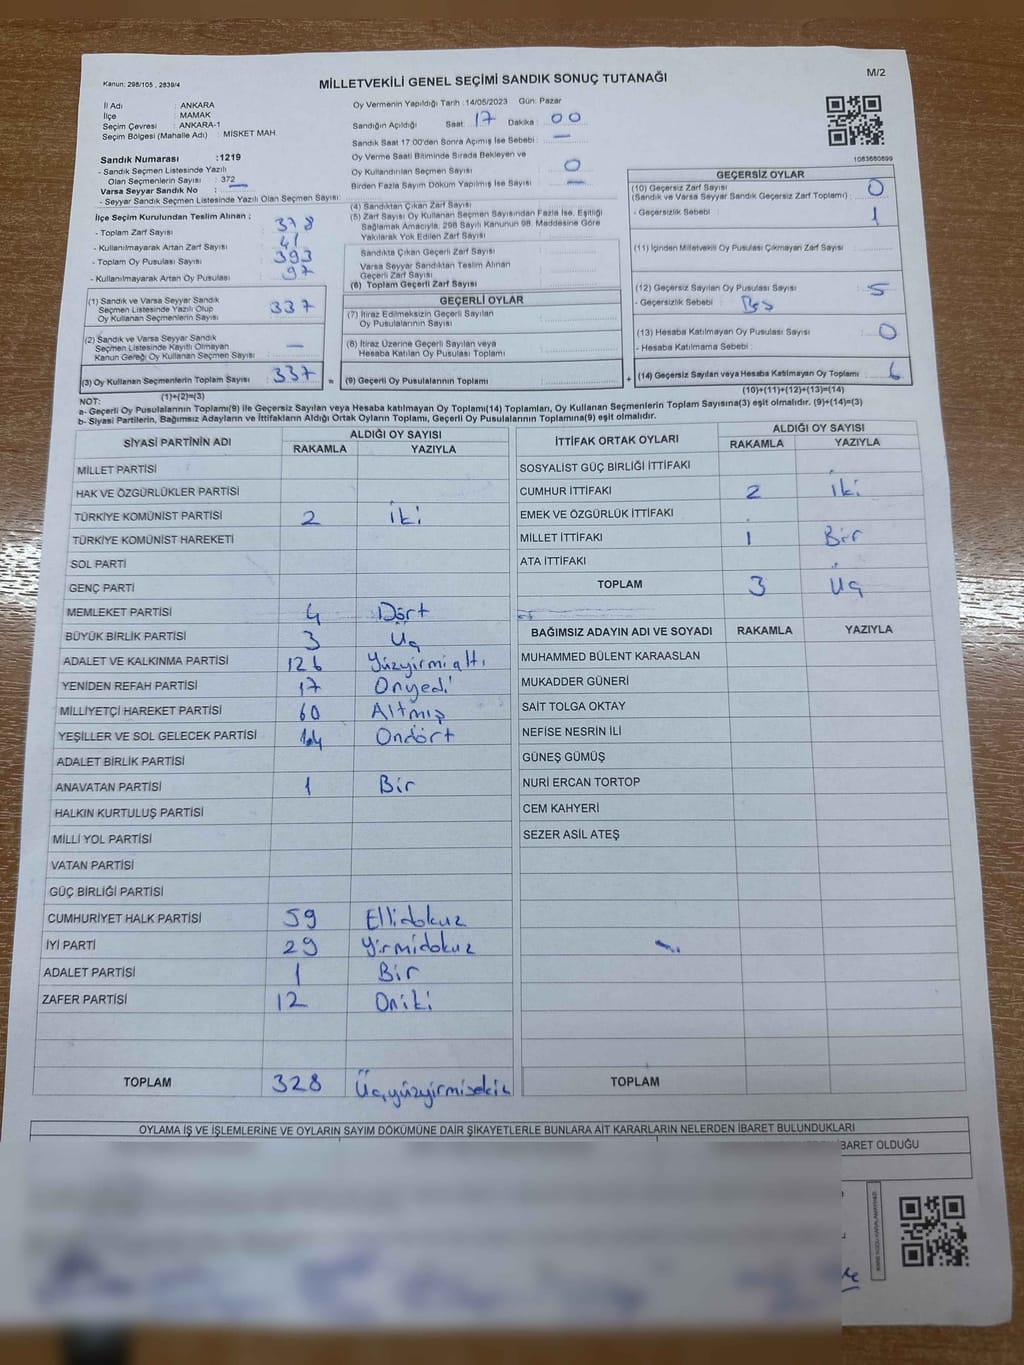 Kanun: 298/105 , 2839/4
MİLLETVEKİLİ GENEL SEÇİMİ SANDIK SONUÇ TUTANAĞI
M/2
İl Adı : ANKARA
İlçe : MAMAK
Seçim Çevresi : ANKARA-1
Seçim Bölgesi (Mahalle Adı) : MİSKET MAH.
Sandık Numarası :1219
- Sandık Seçmen Listesinde Yazılı
Olan Seçmenlerin Sayısı : 372
Varsa Seyyar Sandık No :
- Seyyar Sandık Seçmen Listesinde Yazılı Olan Seçmen Sayısı:
Oy Vermenin Yapıldığı Tarih :14/05/2023 Gün: Pazar
Sandığın Açıldığı Saat: 17 Dakika: 00
Sandık Saat 17:00'den Sonra Açımış İse Sebebi : —
Oy Verme Saati Bitiminde Sırada Bekleyen ve
Oy Kullandırılan Seçmen Sayısı : 0
Birden Fazla Sayım Döküm Yapılmış İse Sayısı : —
1083680899
İlçe Seçim Kurulundan Teslim Alınan ;
- Toplam Zarf Sayısı : 378
- Kullanılmayarak Artan Zarf Sayısı : 41
- Toplam Oy Pusulası Sayısı : 393
- Kullanılmayarak Artan Oy Pusulası : 97
(1) Sandık ve Varsa Seyyar Sandık
Seçmen Listesinde Yazılı Olup
Oy Kullanan Seçmenlerin Sayısı : 337
(2) Sandık ve Varsa Seyyar Sandık
Seçmen Listesinde Kayıtlı Olmayan
Kanun Gereği Oy Kullanan Seçmen Sayısı : —
(3) Oy Kullanan Seçmenlerin Toplam Sayısı : 337
(1)+(2)=(3)
(4) Sandıktan Çıkan Zarf Sayısı :
(5) Zarf Sayısı Oy Kullanan Seçmen Sayısından Fazla İse, Eşitliği
Sağlamak Amacıyla, 298 Sayılı Kanunun 98. Maddesine Göre
Yakılarak Yok Edilen Zarf Sayısı :
Sandıkta Çıkan Geçerli Zarf Sayısı :
Varsa Seyyar Sandıktan Teslim Alınan
Geçerli Zarf Sayısı :
(6) Toplam Geçerli Zarf Sayısı :
GEÇERLİ OYLAR
(7) İtiraz Edilmeksizin Geçerli Sayılan
Oy Pusulalarının Sayısı :
(8) İtiraz Üzerine Geçerli Sayılan veya
Hesaba Katılan Oy Pusulası Toplamı :
= (9) Geçerli Oy Pusulalarının Toplamı :
GEÇERSİZ OYLAR
(10) Geçersiz Zarf Sayısı
(Sandık ve Varsa Seyyar Sandık Geçersiz Zarf Toplamı) : 0
- Geçersizlik Sebebi : 1
(11) İçinden Milletvekili Oy Pusulası Çıkmayan Zarf Sayısı :
(12) Geçersiz Sayılan Oy Pusulası Sayısı : 5
- Geçersizlik Sebebi : Beş
(13) Hesaba Katılmayan Oy Pusulası Sayısı : 0
- Hesaba Katılmama Sebebi :
+ (14) Geçersiz Sayılan veya Hesaba Katılmayan Oy Toplamı : 6
(10)+(11)+(12)+(13)=(14)
NOT:
a- Geçerli Oy Pusulalarının Toplamı(9) ile Geçersiz Sayılan veya Hesaba Katılmayan Oy Toplamı(14) Toplamları, Oy Kullanan Seçmenlerin Toplam Sayısına(3) eşit olmalıdır. (9)+(14)=(3)
b- Siyasi Partilerin, Bağımsız Adayların ve İttifakların Aldığı Ortak Oyların Toplamı, Geçerli Oy Pusulalarının Toplamına(9) eşit olmalıdır.
SİYASİ PARTİNİN ADI ALDIĞI OY SAYISI
RAKAMLA YAZIYLA
MİLLET PARTİSİ
HAK VE ÖZGÜRLÜKLER PARTİSİ
TÜRKİYE KOMÜNİST PARTİSİ 2 iki
TÜRKİYE KOMÜNİST HAREKETİ
SOL PARTİ
GENÇ PARTİ
MEMLEKET PARTİSİ 4 Dört
BÜYÜK BİRLİK PARTİSİ 3 Üç
ADALET VE KALKINMA PARTİSİ 126 Yüzyirmialtı
YENİDEN REFAH PARTİSİ 17 Onyedi
MİLLİYETÇİ HAREKET PARTİSİ 60 Altmış
YEŞİLLER VE SOL GELECEK PARTİSİ 14 Ondört
ADALET BİRLİK PARTİSİ
ANAVATAN PARTİSİ 1 Bir
HALKIN KURTULUŞ PARTİSİ
MİLLİ YOL PARTİSİ
VATAN PARTİSİ
GÜÇ BİRLİĞİ PARTİSİ
CUMHURİYET HALK PARTİSİ 59 Ellidokuz
İYİ PARTİ 29 Yirmidokuz
ADALET PARTİSİ 1 Bir
ZAFER PARTİSİ 12 Oniki
TOPLAM 328 Üçyüzyirmisekiz
İTTİFAK ORTAK OYLARI ALDIĞI OY SAYISI
RAKAMLA YAZIYLA
SOSYALİST GÜÇ BİRLİĞİ İTTİFAKI
CUMHUR İTTİFAKI 2 iki
EMEK VE ÖZGÜRLÜK İTTİFAKI
MİLLET İTTİFAKI 1 Bir
ATA İTTİFAKI
TOPLAM 3 Üç
BAĞIMSIZ ADAYIN ADI VE SOYADI RAKAMLA YAZIYLA
MUHAMMED BÜLENT KARAASLAN
MUKADDER GÜNERİ
SAİT TOLGA OKTAY
NEFİSE NESRİN İLİ
GÜNEŞ GÜMÜŞ
NURİ ERCAN TORTOP
CEM KAHYERİ
SEZER ASİL ATEŞ
TOPLAM
OYLAMA İŞ VE İŞLEMLERİNE VE OYLARIN SAYIM DÖKÜMÜNE DAİR ŞİKAYETLERLE BUNLARA AİT KARARLARIN NELERDEN İBARET BULUNDUKLARI
İBARET OLDUĞU